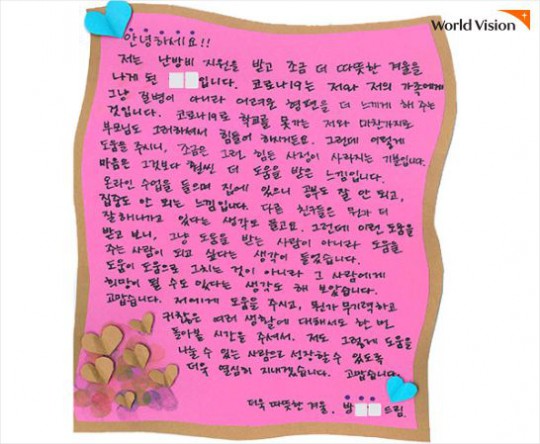 World Vision
안녕하세요!!
저는 난방비 지원을 받고 조금 더 따뜻한 겨울을
나게 된 입니다. 코로나19는 저와 저의 가족에게
그냥 질병이 아니라 어려운 형편을 더 느끼게 해 주는
것입니다. 코로나19로 학교를 못가는 저와 마찬가지로
부모님도 그러하셔서 힘들어 하시거든요. 그런데 이렇게
도움을 주시니, 조금은 그런 힘든 사정이 사라지는 기분입니다.
마음은 그것보다 훨씬 더 도움을 받은 느낌입니다.
온라인 수업을 들으며 집에 있으니 공부도 잘 안 되고,
집중도 안 되는 느낌입니다. 다른 친구들은 뭔가 더
잘해나가고 있다는 생각도 들고요. 그런데 이런 도움을
받고 보니, 그냥 도움을 받는 사람이 아니라 도움을
주는 사람이 되고 싶다는 생각이 들었습니다.
도움이 도움으로 그치는 것이 아니라 그 사람에게
희망이 될 수도 있다는 생각도 해 보았습니다.
고맙습니다. 저에게 도움을 주시고, 뭔가 무기력하고
귀찮은 여러 생활에 대해서도 한 번
돌아볼 시간을 주셔서. 저도 그렇게 도움을
나눌 수 있는 사람으로 성장할 수 있도록
더욱 열심히 지내겠습니다. 고맙습니다.
더욱 따뜻한 겨울, 방 드림.